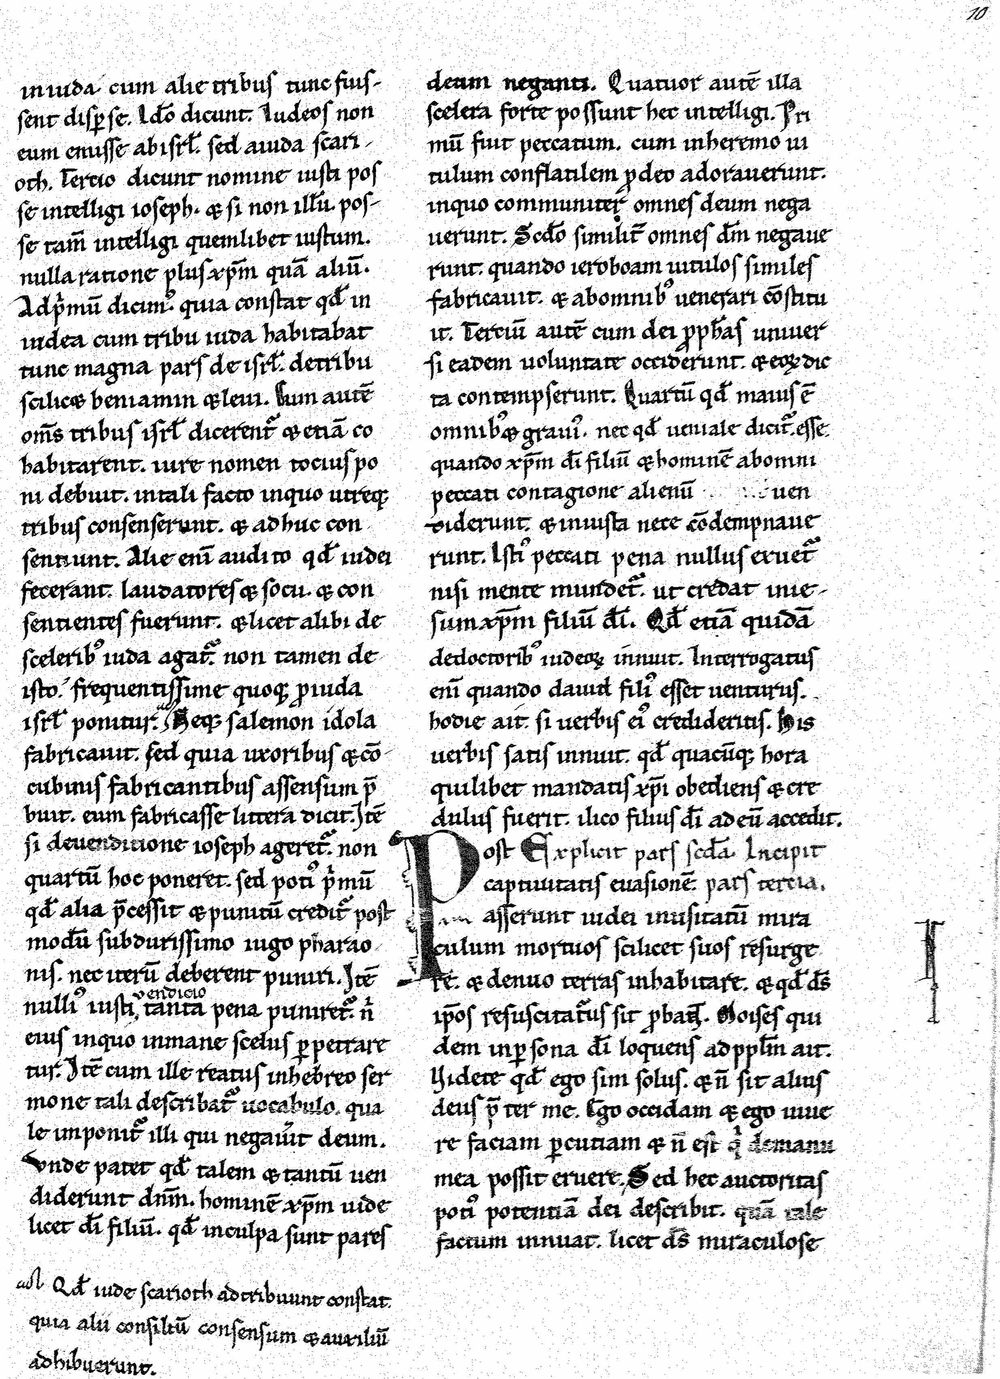 10
in iuda cum alie tribus tunc fuis-
sent disꝑse. Ido dicunt. Iudeos non
eum emisse ab isrł. sed a iuda scari-
oth. Tercio dicunt nomine iusti pos
se intelligi ioseph. & si non illū. pos-
se tam̄ intelligi quemlibet iustum.
nulla ratione plus xp̄m quā aliū.
Ad p̄mū dicim⁹. quia constat qđ in
iudea cum tribu iuda habitabat
tunc magna pars de isrł. de tribu
scilic& beniamin & leui. Cum autē
om̄s tribus isrł dicerent᷑ & etiā co
habitarent. iure nomen tocius po
ni debuit. in tali facto in quo utreq;
tribus consenserunt. & adhuc con
sentiunt. Alie eni audito qđ iudei
fecerant. laudatores & socii. & con
sentientes fuerunt. & licet alibi de
scelerib⁹ iuda agat᷑. non tamen de
isto. frequentissime quoq; ꝓ iuda
isrł ponitur. Neq; salemon idola
fabricauit. sed quia uxoribus & cō
cubinis fabricantibus assensum p̄
buit. eum fabricasse littera dicit. Itē
si de uenditione ioseph ageret᷑. non
quartū hoc poneret. sed poti⁹ p̄mū
qđ alia p̄cessit & punitū credit᷑ post
modū sub durissimo iugo pharao
nis. nec iterū deberent puniri. Itē
nulli⁹ iusti vendicio tanta pena puniret᷑. n̄
eius in quo inmane scelus ꝑpetrare
tur. Itē cum ille reatus in hebreo ser
mone tali describat᷑ uocabulo. qua
le imponit᷑ illi qui negauit deum.
Vnde patet qđ talem & tantū uen
diderunt dn̄m. hominē xp̄m uide
licet dī filiū. qđ in culpa sunt pares
Qđ iude scarioth ad tribuunt constat.
quia alii consiliū consensum & auxiliū
adhibuerunt.
deum neganti. Quatuor autē illa
scelera forte possunt hec intelligi. Pri
mū fuit peccatum. cum in heremo ui
tulum conflatilem ꝓ deo adorauerunt.
in quo communiter omnes deum nega
uerunt. Scđo similit᷑ omnes dm̄ negaue
runt. quando ieroboam uitulos similes
fabricauit. & ab omnib⁹ uenerari cōstitu
it. Terciū autē cum dei ꝓph̄as uniuer
si eadem uoluntate occiderunt. & eoꝝ dic
ta contempserunt. Quartū qđ maius ē
omnib⁹ & graui⁹. nec qđ ueniale dicit᷑ esse.
quando xp̄m dī filiū & hominē ab omni
peccati contagione alienū uen
diderunt. & iniusta nece cōdempnaue
runt. Isti⁹ peccati pena nullus exuet᷑
nisi mente mundet᷑. ut credat in ie-
sum xp̄m filiū dī. Qđ etiā quidā
de doctorib⁹ iudeoꝝ innuit. Interrogatus
eni quando dauid fili⁹ esset uenturus.
hodie ait. si uerbis ei⁹ credideritis. His
uerbis satis innuit. qđ quacūq; hora
quilibet mandatis xp̄i obediens & cre
dulus fuerit. ilico filius dī ad eū accedit.
Post Explicit pars scđa. Incipit
captiuitatis euasionē. pars tercia.
asserunt iudei inusitatū mira
culum mortuos scilicet suos resurge
re. & denuo terras inhabitare. & qđ ds̄
ip̄os resuscitat᷑us sit ꝓbat᷑. Moises qui
dem in ꝑsona dī loquens ad pplm̄ ait.
Videte qđ ego sim solus. & n̄ sit alius
deus p̄ter me. Ego occidam & ego uiue
re faciam percutiam & n̄ est q̄ de manu
mea possit eruere. Sed hec auctoritas
poti⁹ potentiā dei describit. quā tale
factum innuat. licet ds̄ miraculose